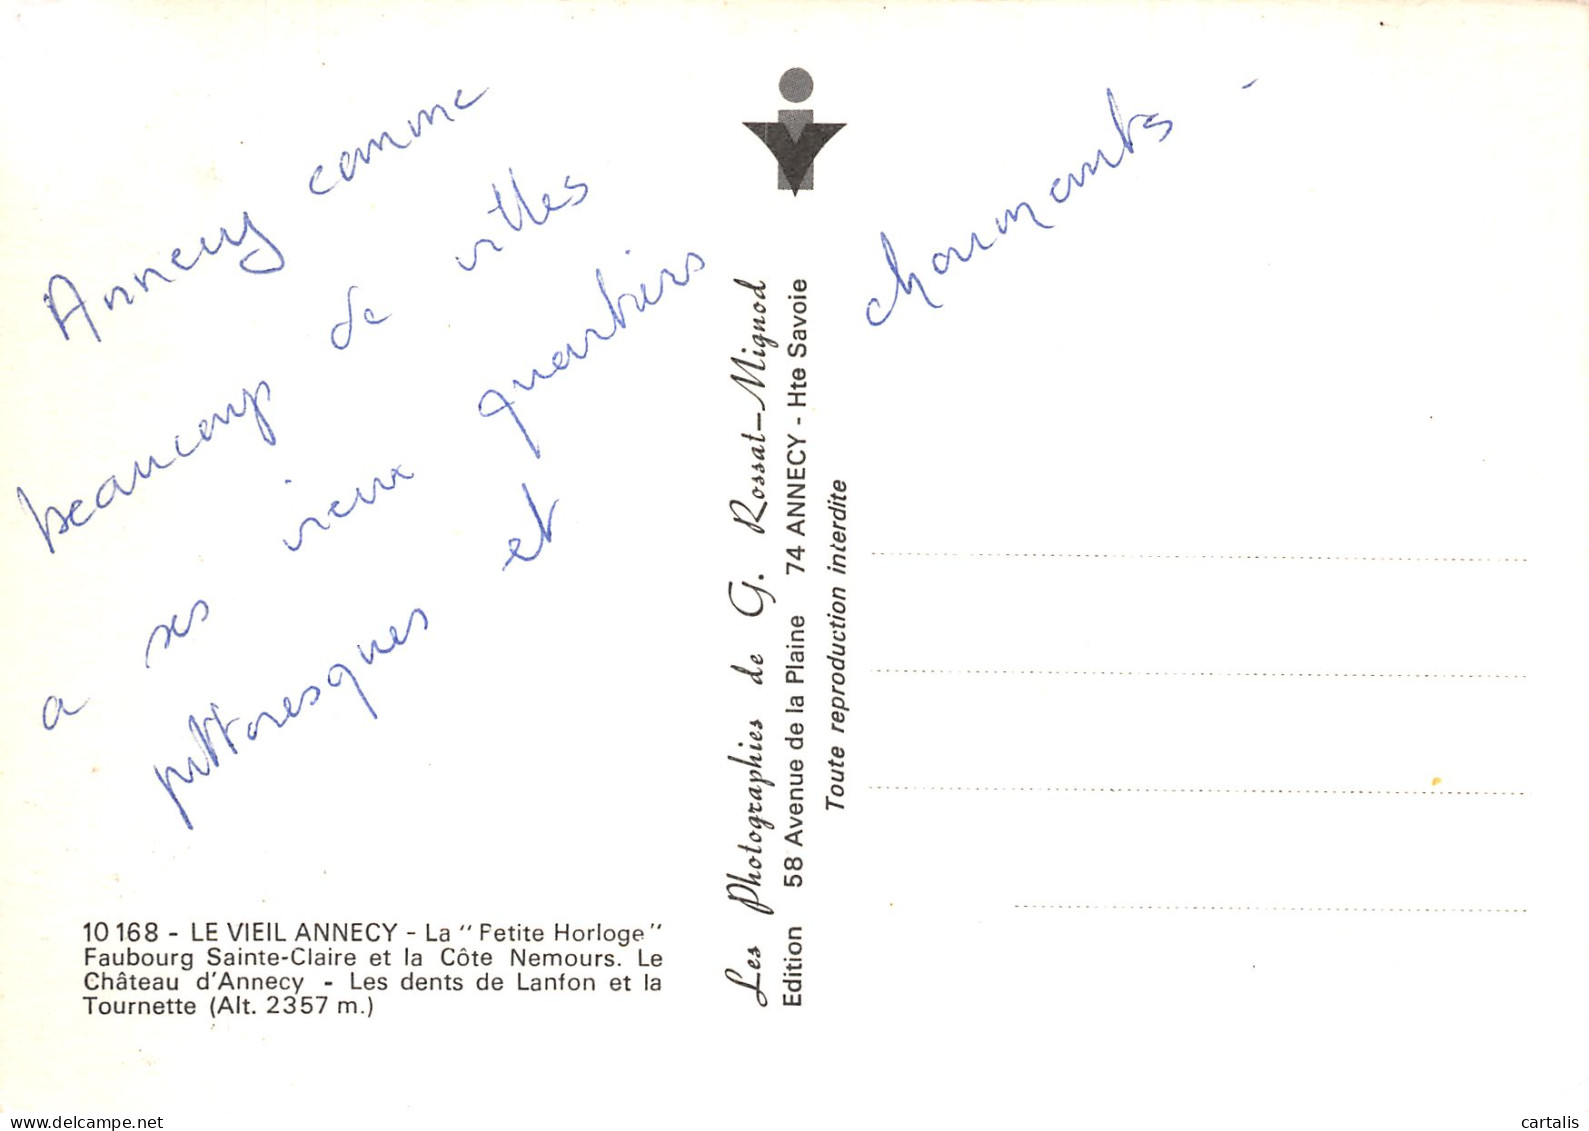 Annecy comme
beaucoup de villes
a ses vieux quartiers
pittoresques et
charmants -
10 168 - LE VIEIL ANNECY - La "Petite Horloge"
Faubourg Sainte-Claire et la Côte Nemours. Le
Château d'Annecy - Les dents de Lanfon et la
Tournette (Alt. 2357 m.)
Les Photographies de G. Rossat-Mignod
Edition 58 Avenue de la Plaine 74 ANNECY - Hte Savoie
Toute reproduction interdite
https://www.delcampe.net
cartalis